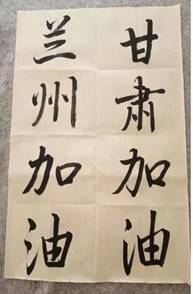 甘肃加油
兰州加油